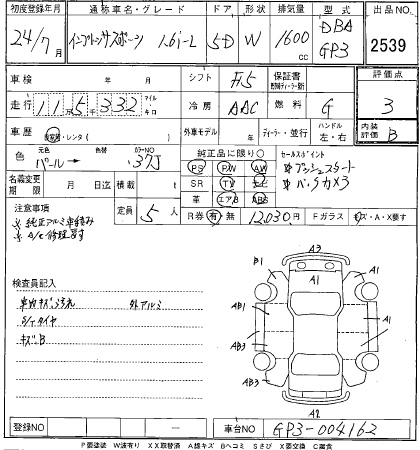 初度登録年月 通称車名・グレード ドア 形状 排気量 型式 出品NO
24/7月 インプレッサスポーツ 1.6i-L 5D W 1600cc DBA GP3 2539
車検 年 月 シフト 保証書 評価点
走行 11万5千332 マイル キロ 冷房 AAC 燃料 G 3
車歴 自家用・レンタ 外車モデル 年 ディーラー・並行 ハンドル 左・右 内装評価 B
色 元色 パール 色替 カラーNO 37J 純正品に限り○ セールスポイント
PS PW AW ※プッシュスタート
名義変更期限 月 日迄 積載 t SR TV ※バックカメラ
定員 5人 革 エアB ABS
注意事項 R券 有 無 12,030円 Fガラス キズ・A・X要す
※純正アルミ
※A/C修理要す
A3
B1 A1 A1
検査員記入
車内キズ汚れ 外アルミ AB1 A1
スタイヤ
キズB AB3 AB3 A1
A2
登録NO 車台NO GP3-004162
P要塗装 W波有り XX取替済 A線キズ Bヘコミ Sさび X要交換 C腐食